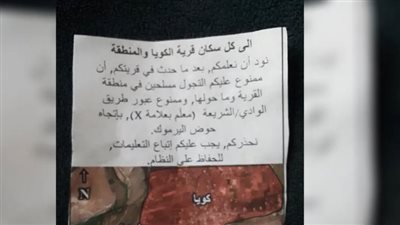 الى كل سكان قرية الكويا والمنطقة
نود أن نعلمكم, بعد ما حدث في قريتكم, أن
ممنوع عليكم التجول مسلحين في منطقة
القرية وما حولها, وممنوع عبور طريق
الوادي/الشريعة (معلّم بعلامة X), بإتجاه
حوض اليرموك.
نحذركم, يجب عليكم إتباع التعليمات,
للحفاظ على النظام.
N
كويا